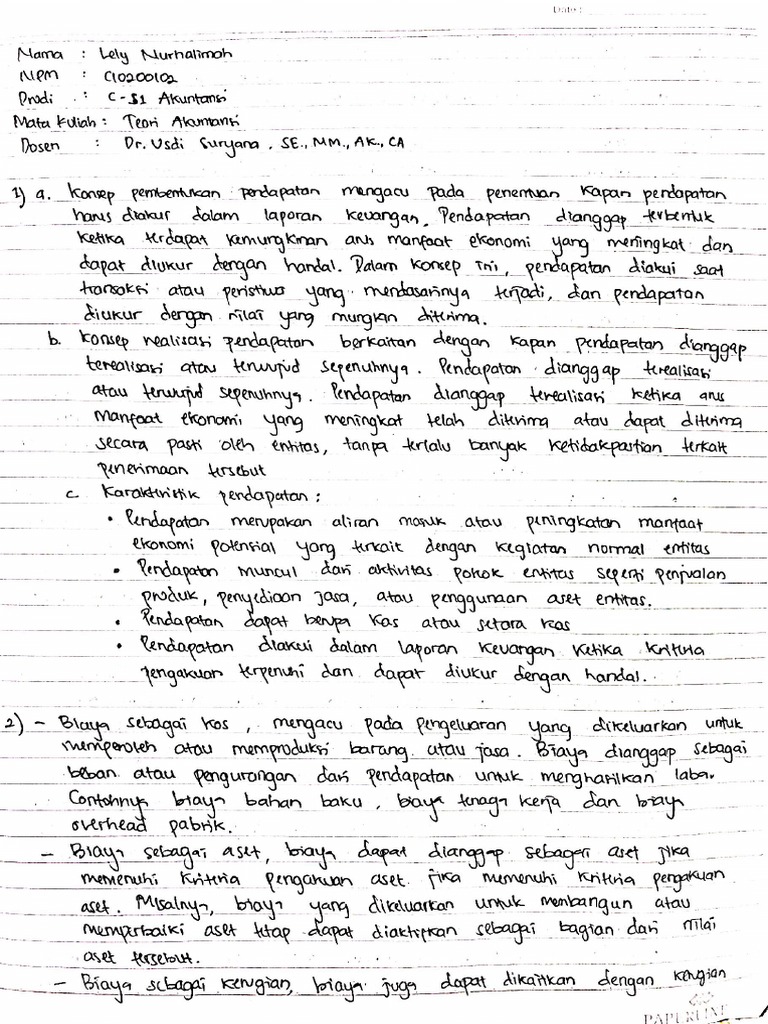 Date :
Nama : Lely Nurhalimah
NPM : C10200102
Prodi : C-S1 Akuntansi
Mata Kuliah : Teori Akuntansi
Dosen : Dr. Usdi Suryana, SE., MM., AK., CA
1) a. Konsep pembentukan pendapatan mengacu pada penentuan kapan pendapatan
harus diakur dalam laporan keuangan. Pendapatan dianggap terbentuk
ketika terdapat kemungkinan arus manfaat ekonomi yang meningkat dan
dapat diukur dengan handal. Dalam konsep ini, pendapatan diakui saat
transaksi atau peristiwa yang mendasarinya terjadi, dan pendapatan
diukur dengan nilai yang mungkin diterima.
b. Konsep realisasi pendapatan berkaitan dengan kapan pendapatan dianggap
terealisasi atau terwujud sepenuhnya. Pendapatan dianggap terealisasi
atau terwujud sepenuhnya. Pendapatan dianggap terealisasi ketika arus
manfaat ekonomi yang meningkat telah diterima atau dapat diterima
secara pasti oleh entitas, tanpa terlalu banyak ketidakpastian terkait
penerimaan tersebut
c. Karakteristik pendapatan :
• Pendapatan merupakan aliran masuk atau peningkatan manfaat
ekonomi potensial yang terkait dengan kegiatan normal entitas
• Pendapatan muncul dari aktivitas pokok entitas seperti penjualan
produk, penyediaan jasa, atau penggunaan aset entitas.
• Pendapatan dapat berupa kas atau setara kas
• Pendapatan diakui dalam laporan keuangan ketika kriteria
pengakuan terpenuhi dan dapat diukur dengan handal.
2) - Biaya sebagai kos, mengacu pada pengeluaran yang dikeluarkan untuk
memperoleh atau memproduksi barang atau jasa. Biaya dianggap sebagai
beban atau pengurangan dari pendapatan untuk menghasilkan laba.
Contohnya biaya bahan baku, biaya tenaga kerja dan biaya
overhead pabrik.
- Biaya sebagai aset, biaya dapat dianggap sebagai aset jika
memenuhi kriteria pengakuan aset. jika memenuhi kriteria pengakuan
aset. Misalnya, biaya yang dikeluarkan untuk membangun atau
memperbaiki aset tetap dapat diaktifkan sebagai bagian dari nilai
aset tersebut.
- Biaya sebagai kerugian, biaya juga dapat dikaitkan dengan kerugian
PAPERLINE